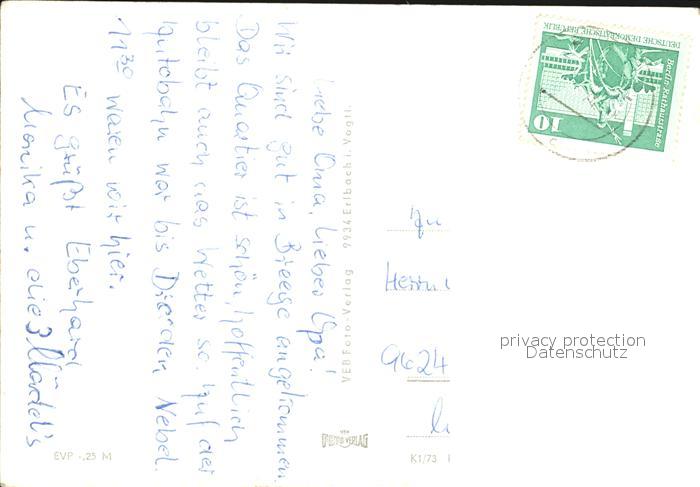 Liebe Oma, lieber Opa!
Wir sind gut in Breege angekommen.
Das Quartier ist schön, hoffentlich
bleibt auch das Wetter so. Auf der
Autobahn war bis Dresden Nebel.
11³⁰ waren wir hier.
Es grüßt Eberhard
Monika u. die 3 Mädel's
VEB Foto-Verlag 9934 Erlbach i. Vogtl.
VEB
FOTO VERLAG
EVP -,25 M
K1/73
DEUTSCHE DEMOKRATISCHE REPUBLIK
Berlin, Rathausstrasse
10
9624
privacy protection
Datenschutz